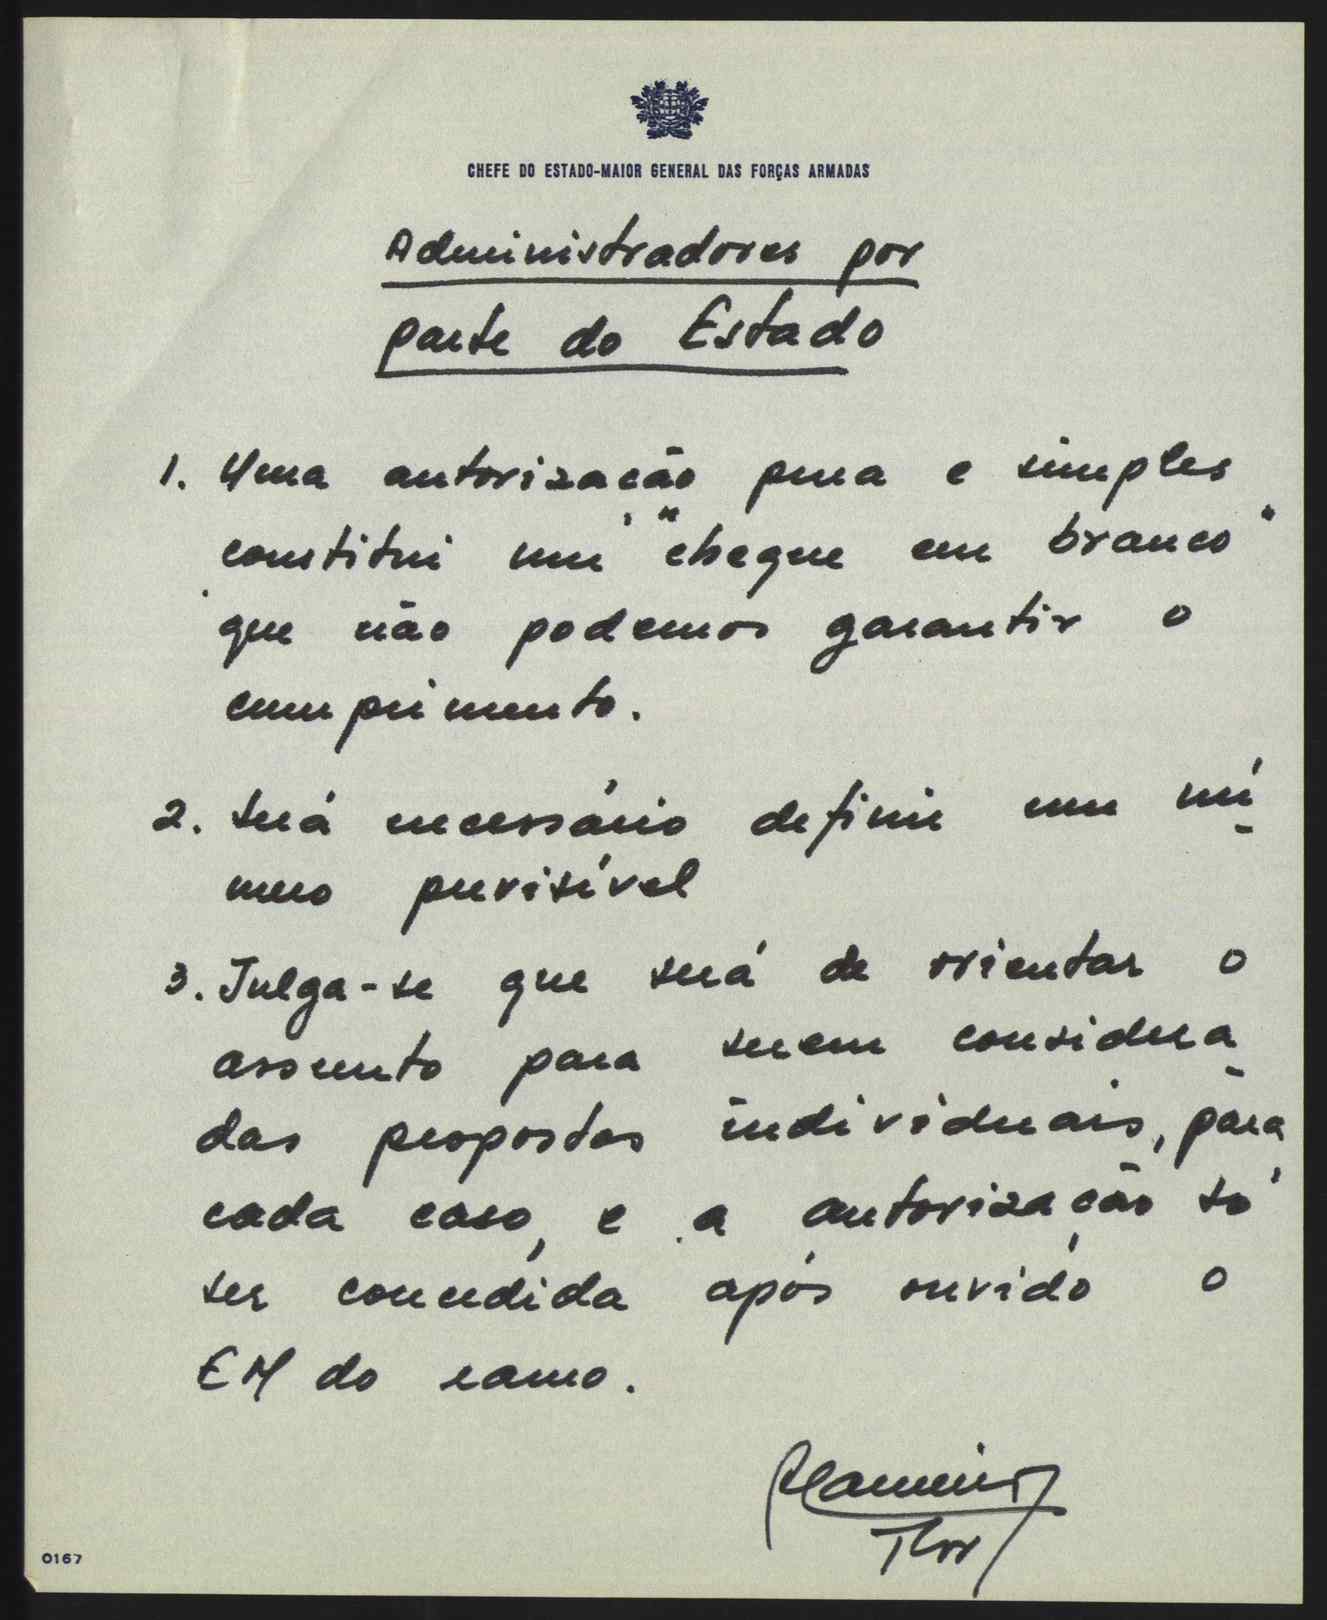 CHEFE DO ESTADO-MAIOR GENERAL DAS FORÇAS ARMADAS
Administradores por
parte do Estado
1. Uma autorização pura e simples
constitui um "cheque em branco"
que não podemos garantir o
cumprimento.
2. Será necessário definir um mí-
nimo previsível
3. Julga-se que será de orientar o
assunto para serem considera-
das propostas individuais, para
cada caso, e a autorização só
ser concedida após ouvido o
EM do ramo.
0167